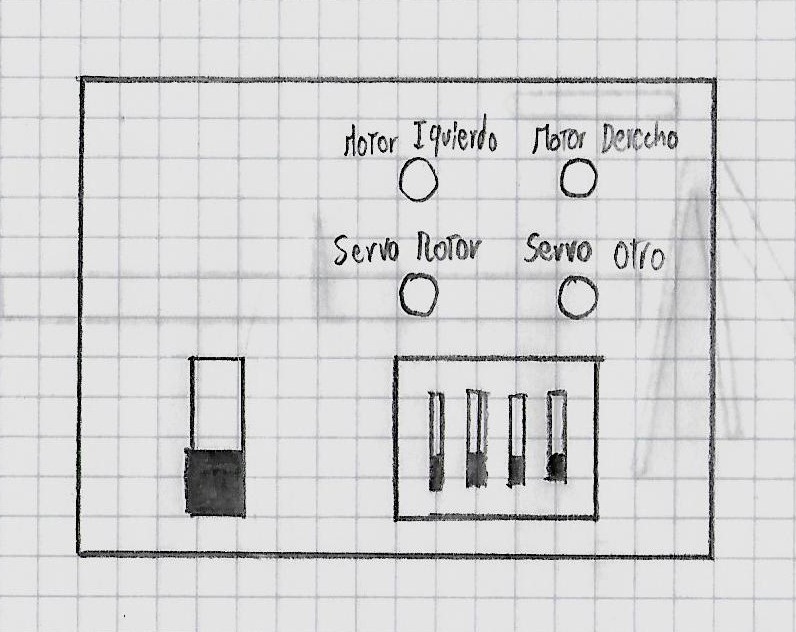 Motor Iquierdo Motor Derecho
Servo Rotor Servo Otro